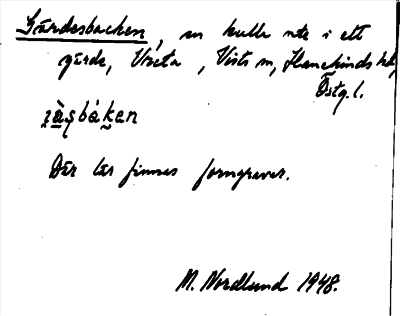 Gärdesbacken, en kulle ute i ett
gärde, Vreta, Vists sn, Hanekinds hd,
Östg. l.
jä̀ṣbákan
Där lär finnas forngraver.
M. Nordlund 1948.